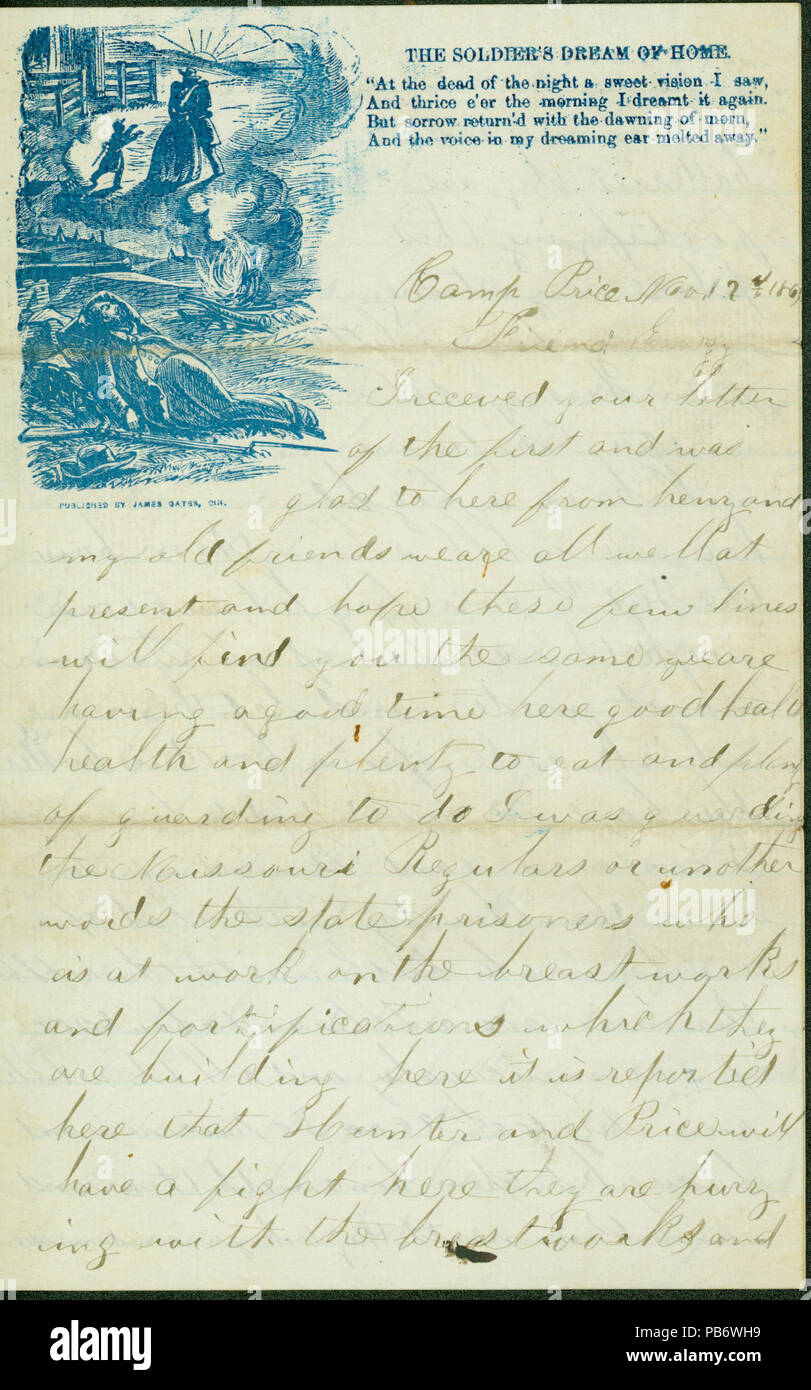 THE SOLDIER'S DREAM OF HOME.
"At the dead of the night a sweet vision I saw,
And thrice e'er the morning I dreamt it again.
But sorrow return'd with the dawning of morn,
And the voice in my dreaming ear melted away."
Camp Price Nov
Friend
I receved your letter
of the first and was
glad to here from heny and
my old friends we are all well at
present and hope these few lines
will find you the same we are
having a good time here good healt
health and plenty to eat and plenty
of guarding to do I was guarding
the Missouri Regulars or in other
words the state prisoners who
is at work on the breast works
and fortifications which they
are building here it is reported
here that Hunter and Price will
have a fight here they are hurry
ing with the breastworks and
PUBLISHED BY JAMES GATES, CIN.
alamy
Image ID: PB6WH9
www.alamy.com